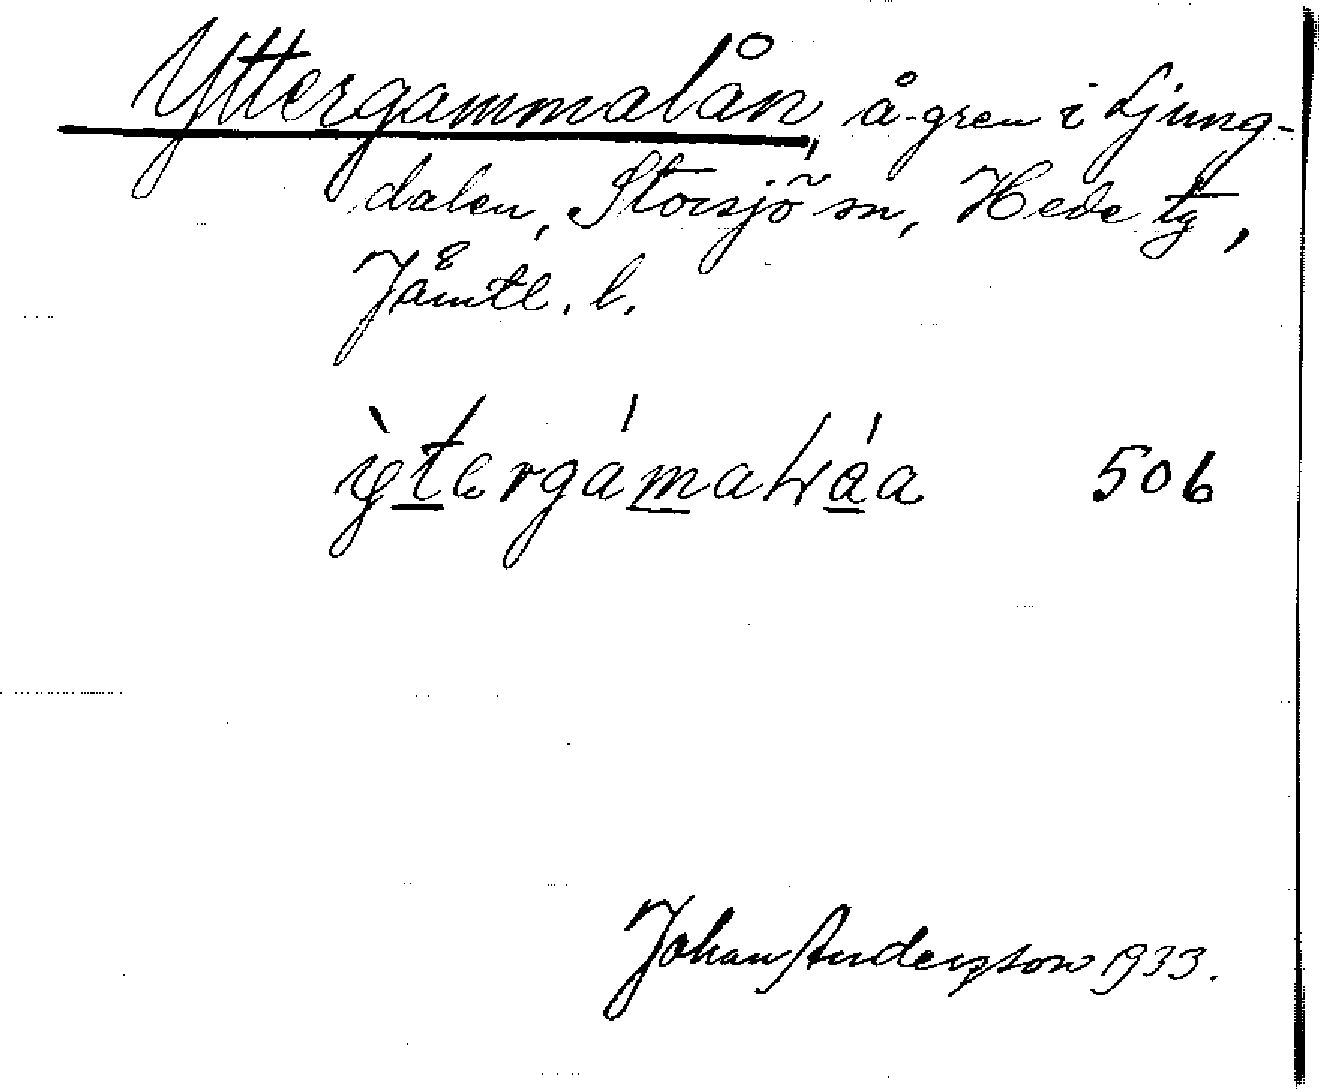 Yttergammalån, å-gren i Ljung-
dalen, Storsjö sn, Hede tg,
Jämtl. l.
506
Johan Anderzson 1933.